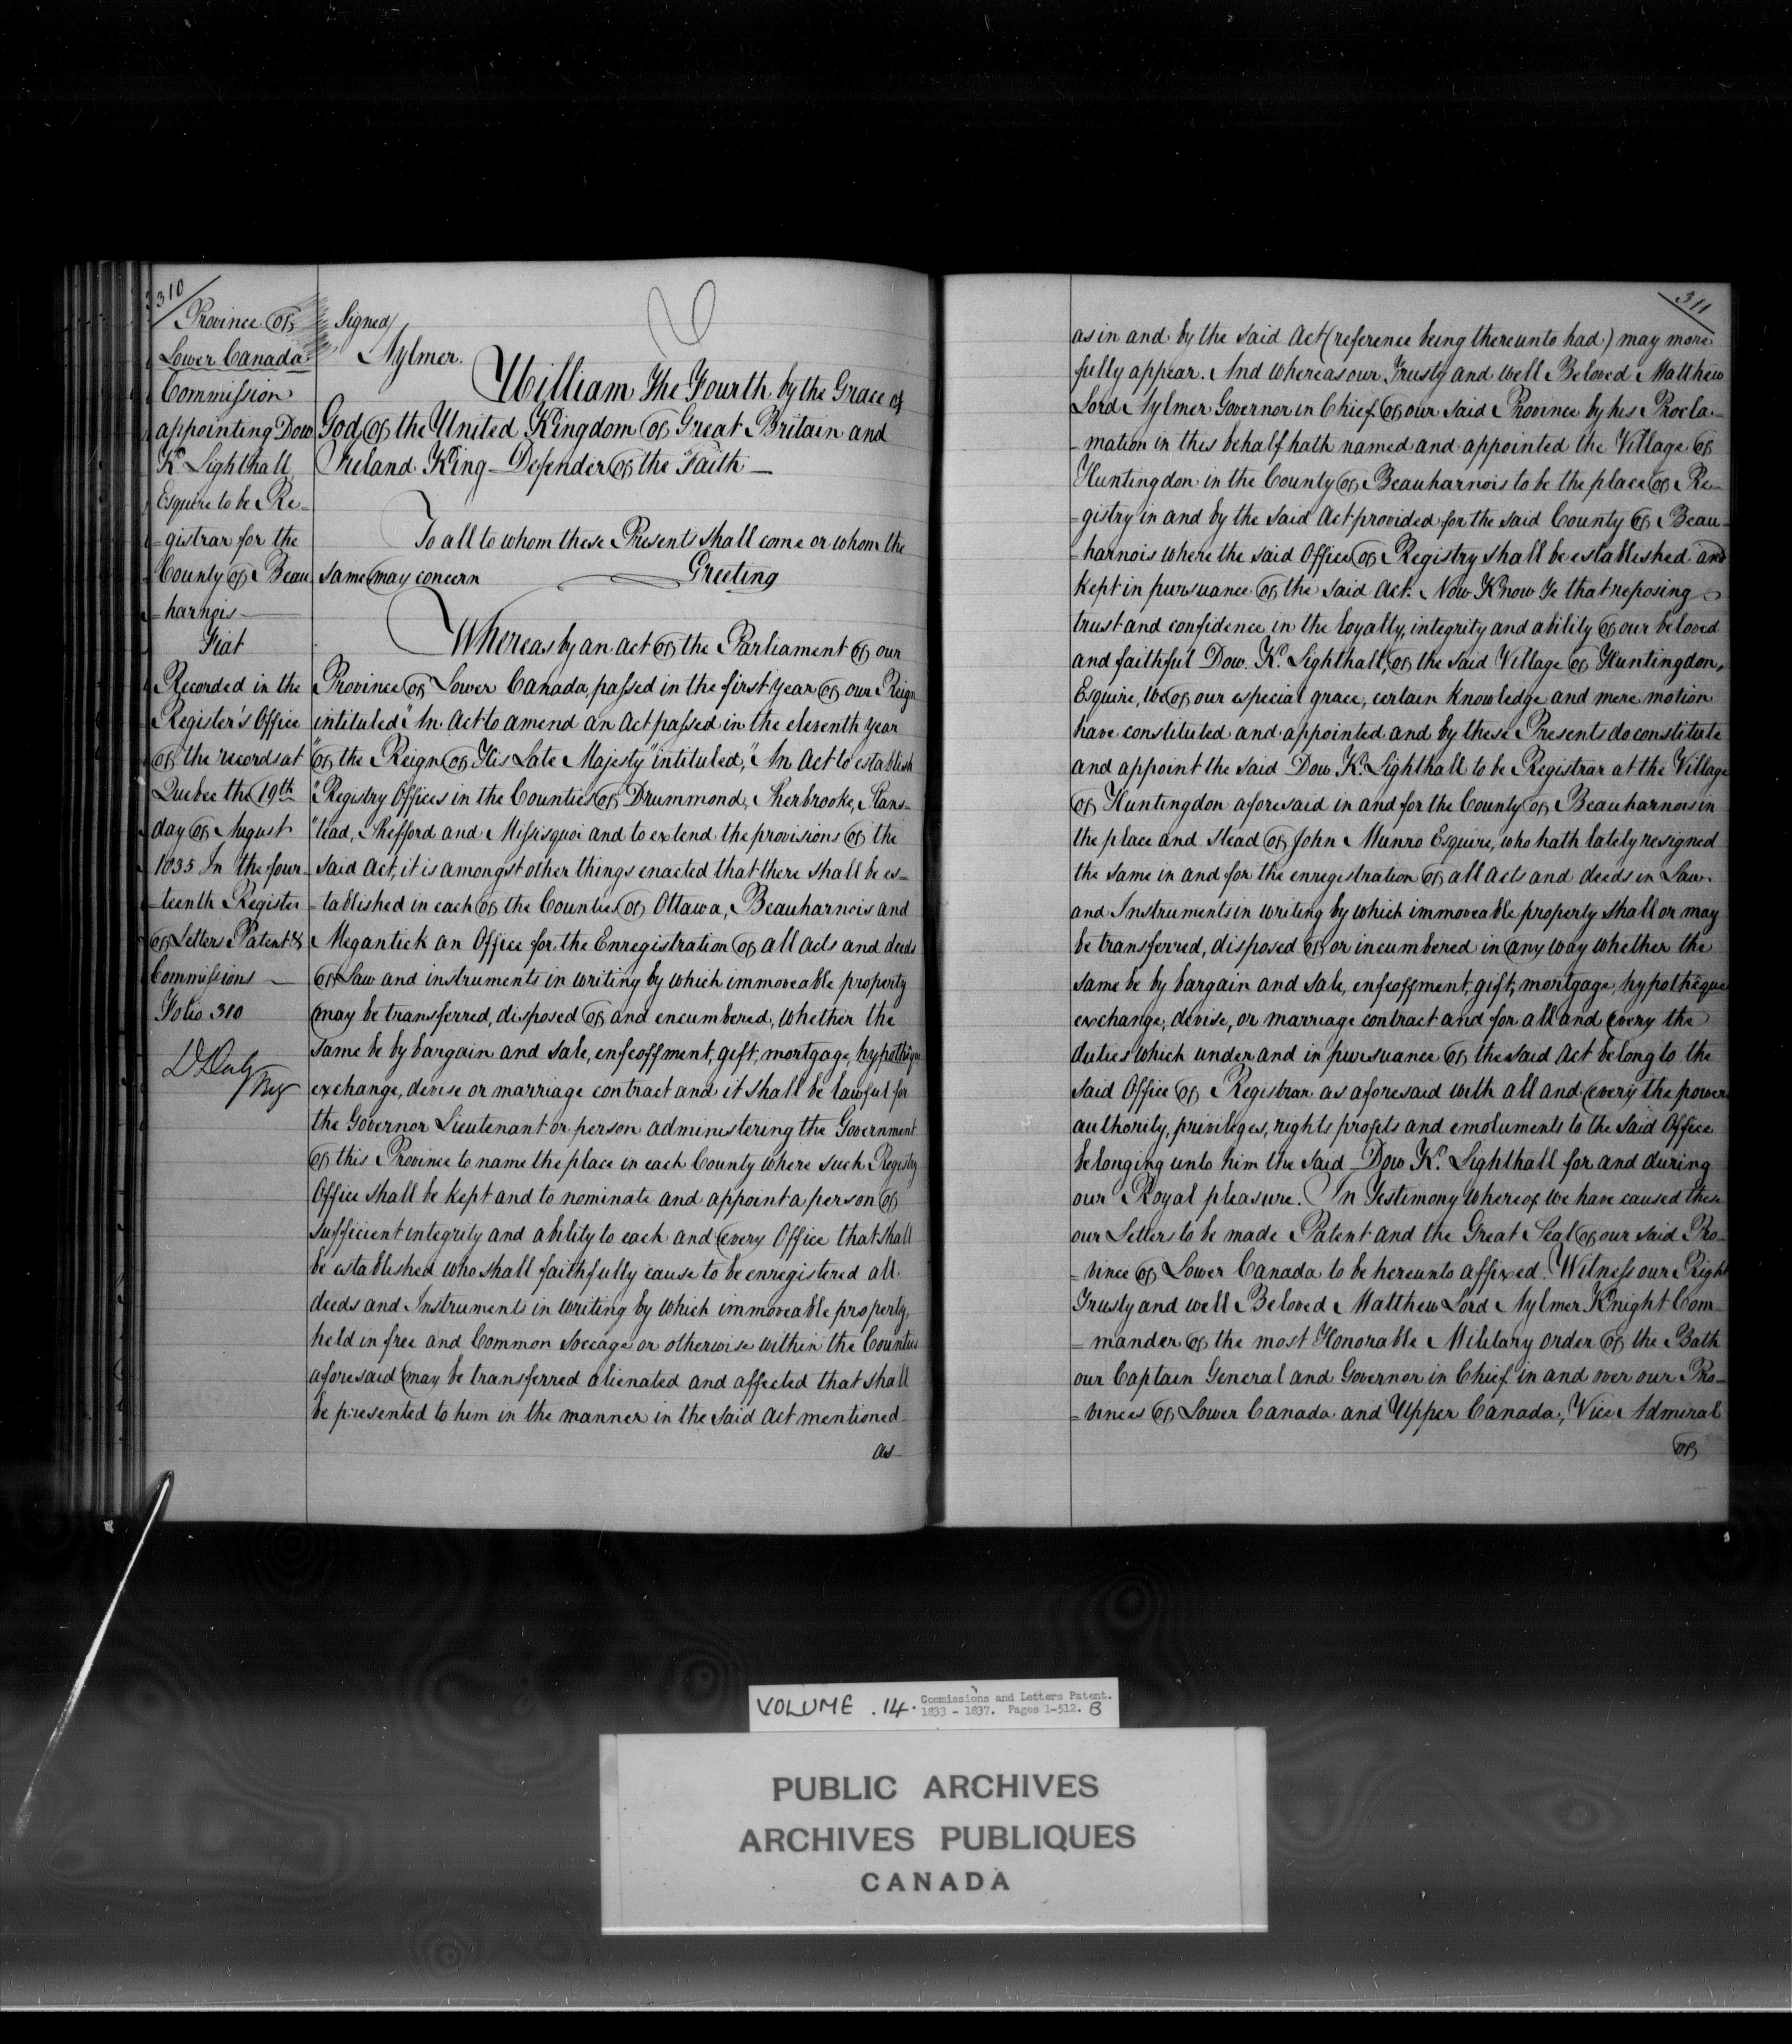 310
Province of
Lower Canada
Commission
appointing Dow
K. Lighthall
Esquire to be Re-
=gistrar for the
County of Beau
=harnois
Fiat
Recorded in the
Register's Office
of the records at
Quebec the 19th
day of August
1835 In the four-
=teenth Register
of Letters Patent &
Commissions
Folio 310
D Daly
Reg
Signed/
Aylmer.
William The Fourth by the Grace of
God, of the United Kingdom of Great Britain and
Ireland King Defender of the Faith
To all to whom these Presents shall come or whom the
same may concern Greeting
Whereas by an act of the Parliament of our
Province of Lower Canada, passed in the first year of our Reign
intituled "An Act to amend an Act passed in the eleventh year
"of the Reign of His Late Majesty" intituled, "An Act to establish
"Registry Offices in the Counties of Drummond, Sherbrooke, Stans-
"tead, Shefford and Missisquoi and to extend the provisions of the
said Act, it is amongst other things enacted that there shall be es=
=tablished in each of the Counties of Ottawa, Beauharnois and
Megantick an Office for the Enregistration of all acts and deeds
of Law and instruments in writing by which immoveable property
may be transferred, disposed of and encumbered, whether the
same be by bargain and sale, enfeoffment, gift, mortgage, hypothèque
exchange, devise or marriage contract and it shall be lawful for
the Governor Lieutenant or person administering the Government
of this Province to name the place in each County where such Registry
Office shall be kept and to nominate and appoint a person of
sufficient integrity and ability to each and every Office that shall
be established who shall faithfully cause to be enregistered all
deeds and Instruments in writing by which immoveable property,
held in free and Common Soccage or otherwise within the Counties
aforesaid may be transferred alienated and affected that shall
be presented to him in the manner in the said Act mentioned
as
311
as in and by the said Act (reference being thereunto had) may more
fully appear. And whereas our Trusty and well Beloved Matthew
Lord Aylmer Governor in Chief of our said Province by his Procla-
-mation in this behalf hath named and appointed the Village of
Huntingdon in the County of Beauharnois to be the place of Re-
=gistry in and by the said Act provided for the said County of Beau-
=harnois where the said Office of Registry shall be established and
kept in pursuance of the said Act. Now Know Ye that reposing
trust and confidence in the loyalty, integrity and ability of our beloved
and faithful Dow. K. Lighthall, of the said Village of Huntingdon,
Esquire, We of our especial grace, certain knowledge and mere motion
have constituted and appointed and by these Presents do constitute
and appoint the said Dow K. Lighthall to be Registrar at the Village
of Huntingdon aforesaid in and for the County of Beauharnois in
the place and stead of John Munro Esquire, who hath lately resigned
the same in and for the enregistration of all acts and deeds in Law
and Instruments in writing by which immoveable property shall or may
be transferred, disposed of or incumbered in any way whether the
same be by bargain and sale, enfeoffment, gift, mortgage, hypothèque
exchange, devise, or marriage contract and for all and every the
duties which under and in pursuance of the said Act belong to the
said Office of Registrar as aforesaid with all and every the power
authority, privileges, rights profits and emoluments to the said Office
belonging unto him the said Dow K. Lighthall for and during
our Royal pleasure. In Testimony whereof we have caused these
our Letters to be made Patent and the Great Seal of our said Pro-
=vince of Lower Canada to be hereunto affixed. Witness our Right
Trusty and well Beloved Matthew Lord Aylmer Knight Com-
=mander of the most Honorable Military order of the Bath
our Captain General and Governor in Chief in and over our Pro=
=vinces of Lower Canada and Upper Canada, Vice Admiral
of
VOLUME .14. Commissions and Letters Patent.
1833 - 1837. Pages 1-512. B
PUBLIC ARCHIVES
ARCHIVES PUBLIQUES
CANADA